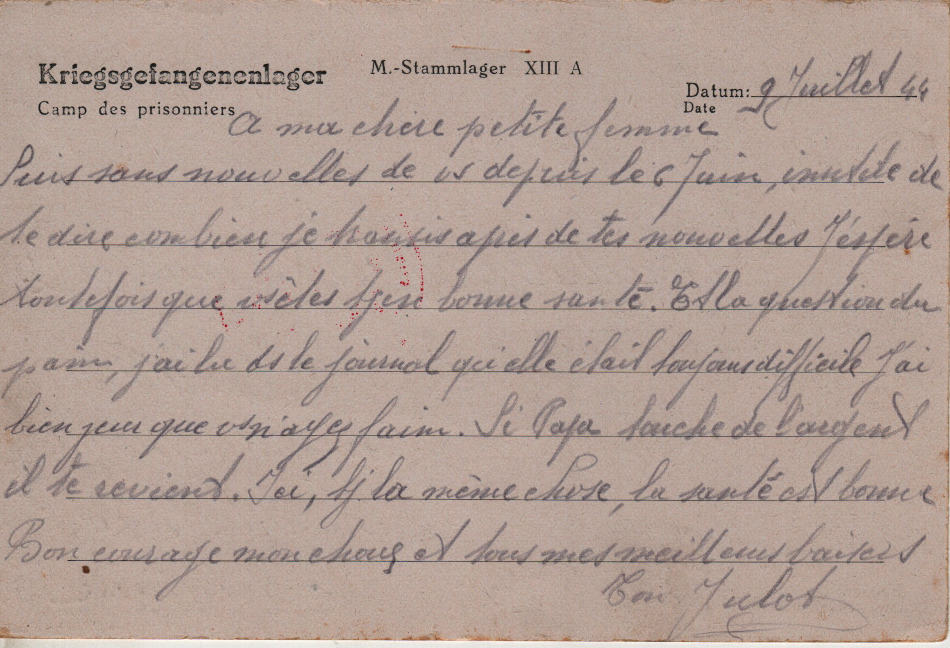 Kriegsgefangenenlager
M.-Stammlager XIII A
Camp des prisonniers
Datum: 9 Juillet 44
Date
A ma chère petite femme
Suis sans nouvelles de vs depuis le 6 Juin, inutile de
te dire combien je de tes nouvelles J'espère
toutefois que vs êtes tjs en bonne santé. Et la question du
pain, j'ai lu ds le journal qu'elle était toujours difficile J'ai
bien peur que vs n'ayez faim. Si Papa touche de l'argent
il te revient. Ici, tj la même chose, la santé est bonne
Bon courage mon chou et tous mes meilleurs baisers
Ton Julot